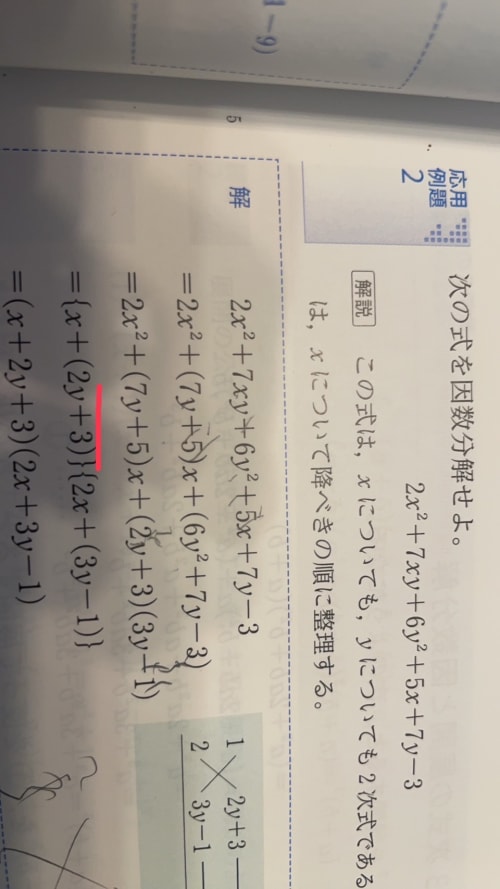 1-9)
5
応用
例題
2
次の式を因数分解せよ。
2x²+7xy+6y²+5x+7y-3
解説 この式は, xについても, yについても2次式である
は, xについて降べきの順に整理する。
解 2x²+7xy+6y²+5x+7y-3
=2x²+(7y+5)x+(6y²+7y-3)
=2x²+(7y+5)x+(2y+3)(3y-1)
={x+(2y+3)}{2x+(3y-1)}
=(x+2y+3)(2x+3y-1)
1 2y+3
2 3y-1